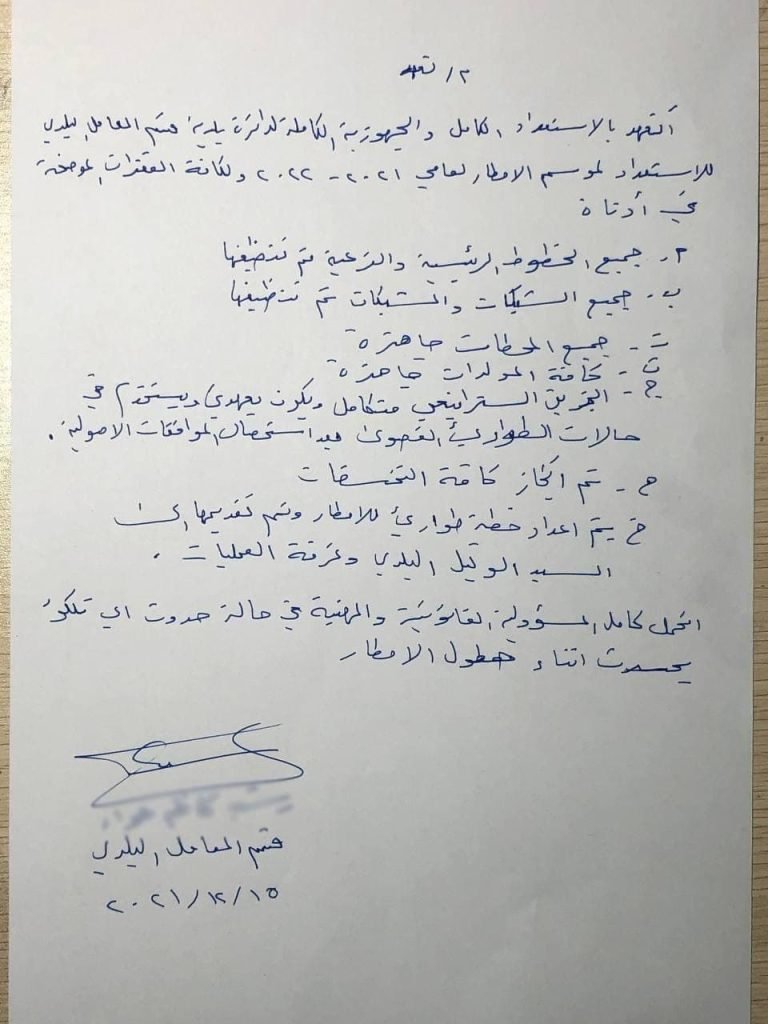 م/ تعهد
اتعهد بالاستعداد الكامل والجهوزية الكاملة لدائرة بلدية قسم المعامل البلدي
للاستعداد لموسم الامطار لعامي ٢٠٢١ - ٢٠٢٢ ولكافة الفقرات الموضحة
في أدناة
أ- جميع الخطوط الرئيسية والفرعية تم تنظيفها
ب- جميع الشبكات والمشبكات تم تنظيفها
ت- جميع المحطات جاهزة
ث- كافة المولدات جاهزة
ج- الخزين الستراتيجي متكامل ويكون بعهدي ويستخدم في
حالات الطوارئ القصوى بعد استحصال الموافقات الاصولية.
ح- تم انجاز كافة التخسفات
خ يتم اعداد خطة طوارئ للامطار وتم تقديمها الى
السيد الوكيل البلدي وغرفة العمليات.
اتحمل كامل المسؤولية القانونية والمهنية في حالة حدوث اي تلكؤ
يحدث اثناء هطول الامطار
قسم المعامل البلدي
٢٠٢١/١٢/١٥